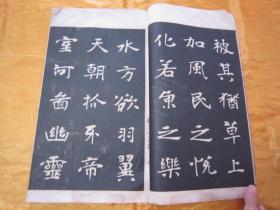 被其猶草上
加風民之悅
化若魚之樂
水方欲羽翼
天朝抓牙帝
室何啚幽靈